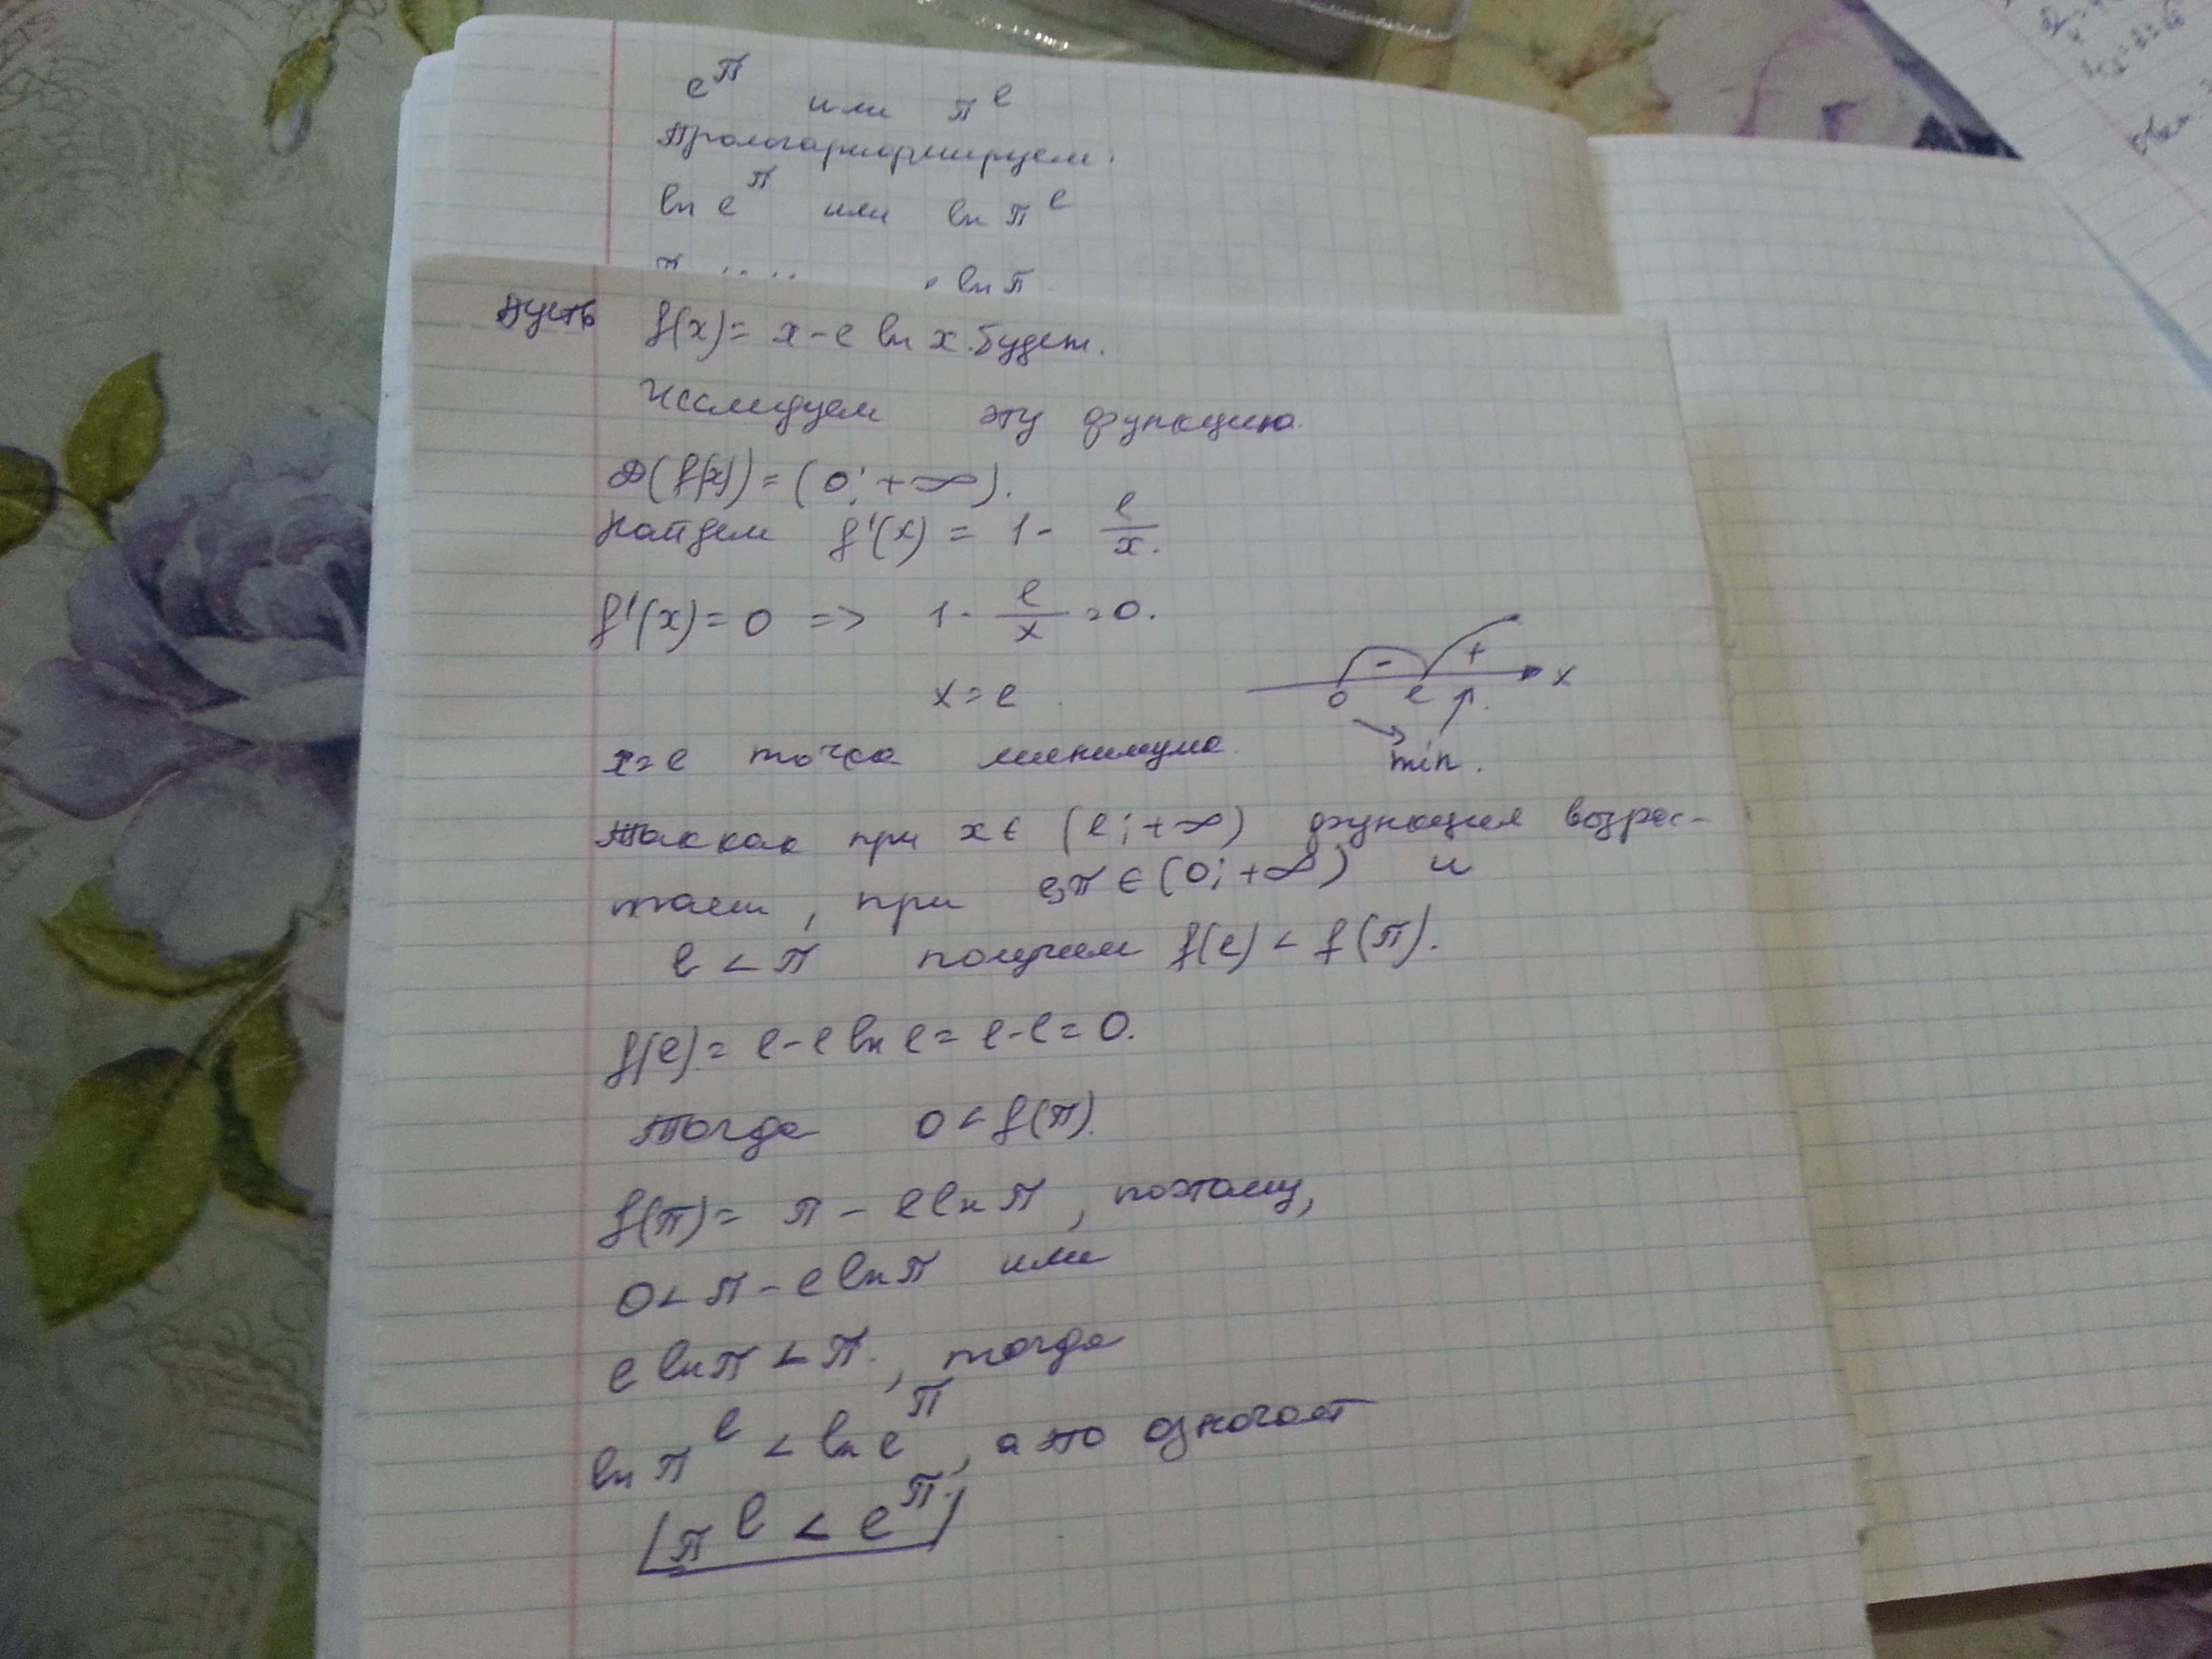 e^π или π^e
Прологарифмируем.
ln e^π или ln π^e
ln π
Пусть f(x)= x - e ln x. Будет.
Исследуем эту функцию.
D(f(x)) = (0; +∞).
Найдем f'(x) = 1 - e/x.
f'(x) = 0 => 1 - e/x = 0.
x = e
- + x
0 e
min.
x = e точка минимума.
Так как при x ∈ (e; +∞) функция возрас-
тает, при e, π ∈ (0; +∞) и
e < π получим f(e) < f(π).
f(e) = e - e ln e = e - e = 0.
Тогда 0 < f(π).
f(π) = π - e ln π, поэтому,
0 < π - e ln π или
e ln π < π, тогда
ln π^e < ln e^π, а это означает
π^e < e^π.